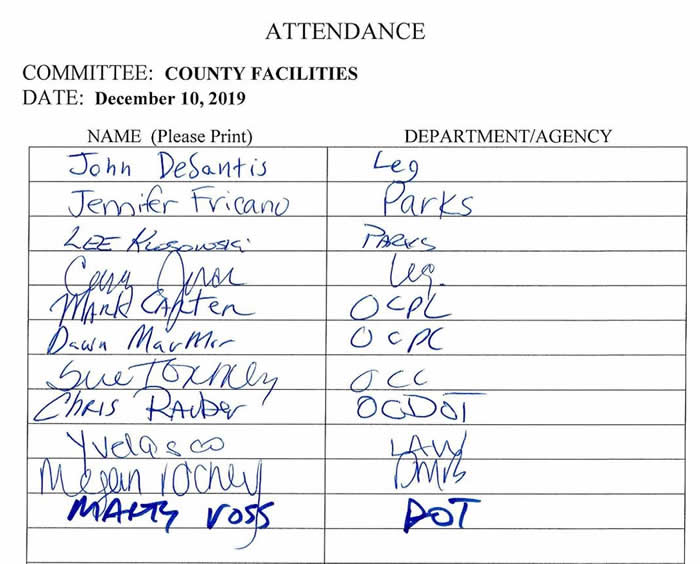 ATTENDANCE
COMMITTEE: COUNTY FACILITIES
DATE: December 10, 2019
NAME (Please Print) DEPARTMENT/AGENCY
John DeSantis Leg
Jennifer Fricano Parks
LEE Klosowski PARKS
Leg.
MARK CAPTEN OCPL
Dawn OCPL
Sue OCC
CHRIS RAUBER OCDOT
Yvelasco LAW
Megan DMB
MARTY VOSS DOT